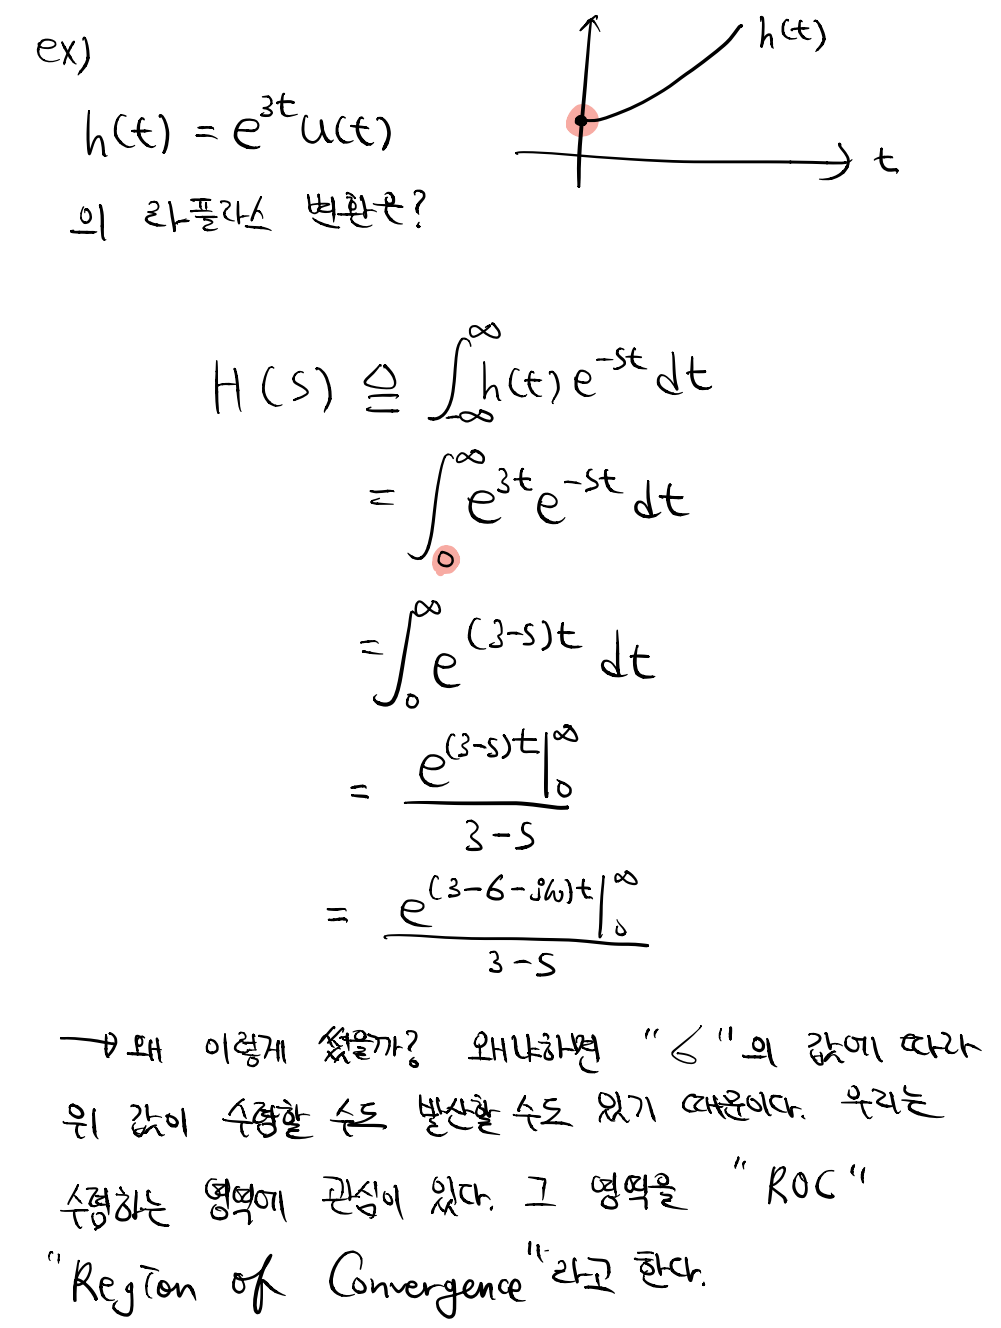 ex)
h(t)
h(t) = e^{3t}u(t)
t
의 라플라스 변환은?
H(s) ≜ ∫_{-∞}^{∞} h(t) e^{-st} dt
= ∫_{0}^{∞} e^{3t} e^{-st} dt
= ∫_{0}^{∞} e^{(3-s)t} dt
= e^{(3-s)t}|_{0}^{∞} / 3-s
= e^{(3-σ-jω)t}|_{0}^{∞} / 3-s
→ 왜 이렇게 썼을까? 왜냐하면 "σ"의 값에 따라
위 값이 수렴할 수도 발산할 수도 있기 때문이다. 우리는
수렴하는 영역에 관심이 있다. 그 영역을 "ROC"
"Region of Convergence"라고 한다.